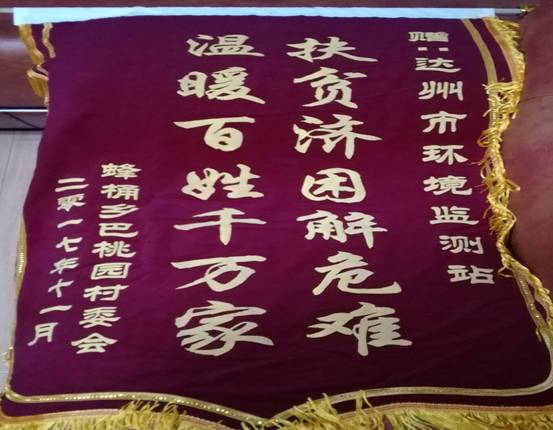 赠：达州市环境监测站
扶贫济困解危难
温暖百姓千万家
蜂桶乡巴桃园村委会
二零一七年十一月